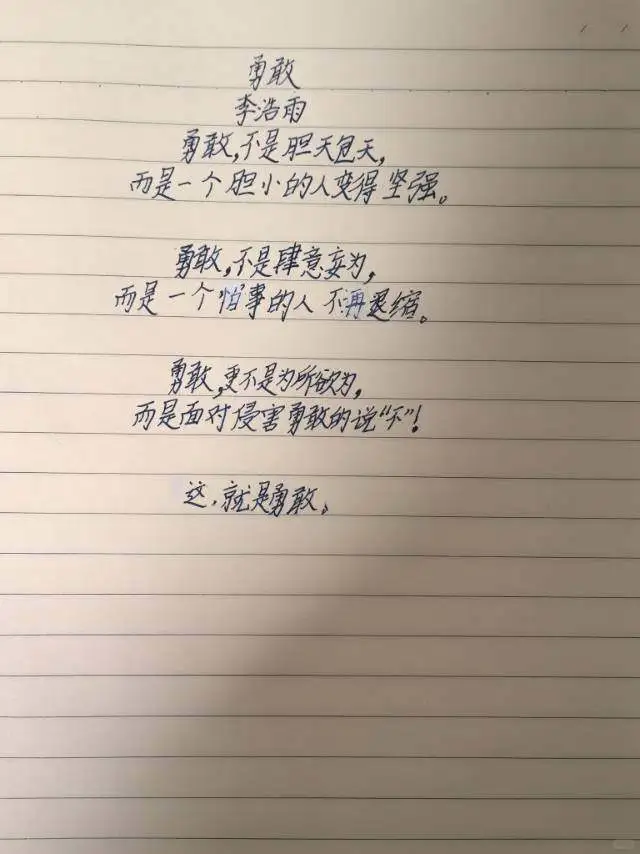 勇敢
李浩雨
勇敢,不是胆天包天,
而是一个胆小的人变得坚强。
勇敢,不是肆意妄为,
而是一个怕事的人不再退缩。
勇敢,更不是为所欲为,
而是面对侵害勇敢的说“不”!
这,就是勇敢。